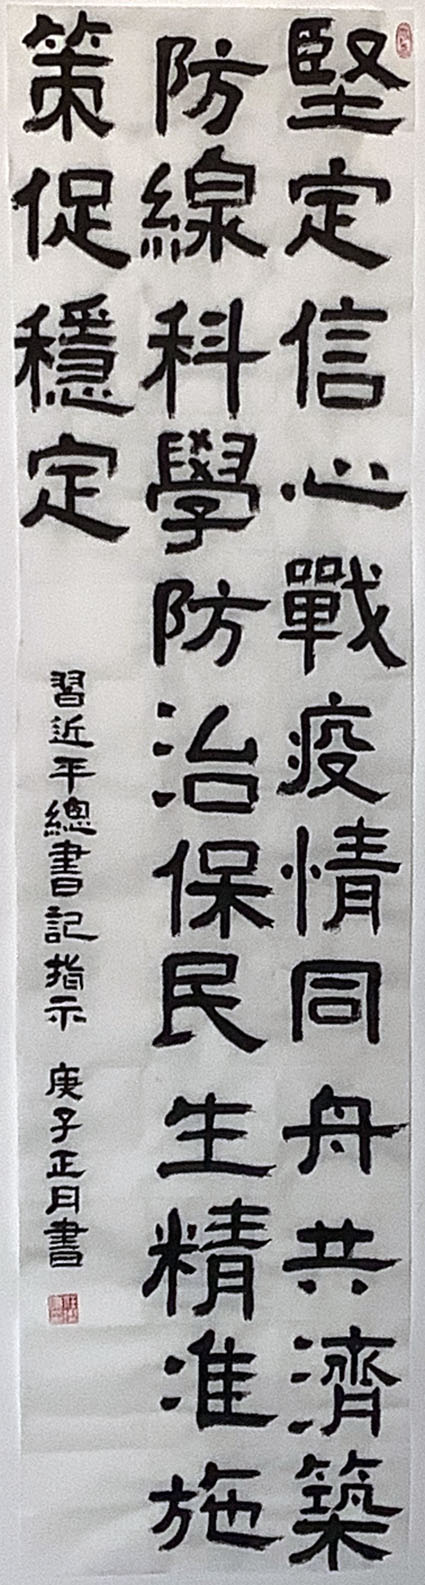 堅定信心戰疫情同舟共濟築
防線科學防治保民生精准施
策促穩定
習近平總書記指示 庚子正月書